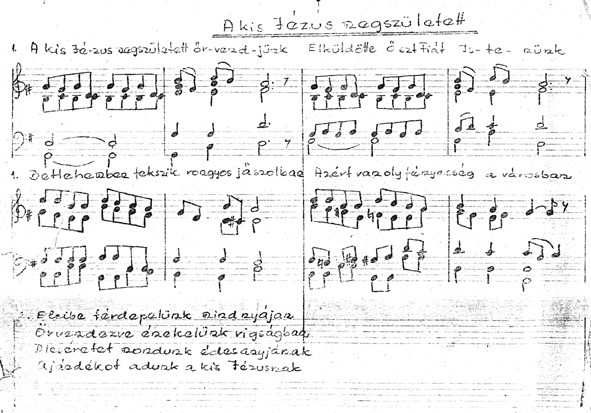 A kis Jézus megszületett
1. A kis Jé-zus megszületett ör-vend-jünk Elküldötte Ő szt Fiát Is-te-nünk
1. Betlehemben fekszik rongyos jászolban Azért van oly fényesség a városban
2. Elcibe térdepelünk mindnyájan
Örvendezve énekelünk vigságban
Dicséretet mondunk édesanyjának
Ajándékot adunk a kis Jézusnak